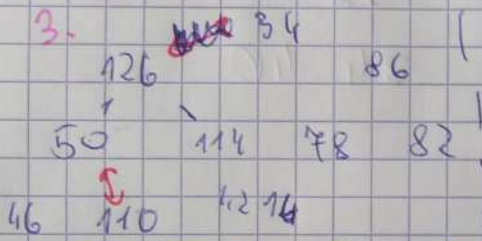 3. 34
126 86
50 114 78 82
46 110